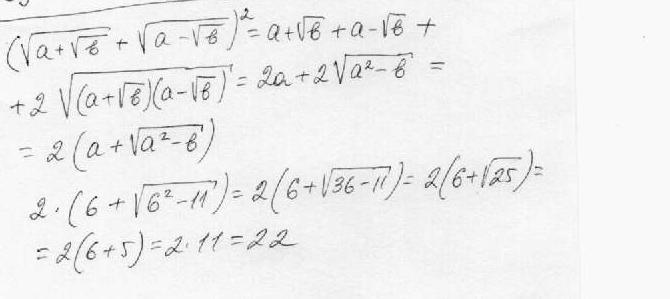 (√(a+√b) + √(a-√b))² = a+√b + a-√b +
+2 √((a+√b)(a-√b)) = 2a+2√(a²-b) =
= 2(a+√(a²-b))
2·(6+√(6²-11)) = 2(6+√(36-11)) = 2(6+√25) =
= 2(6+5) = 2·11 = 22